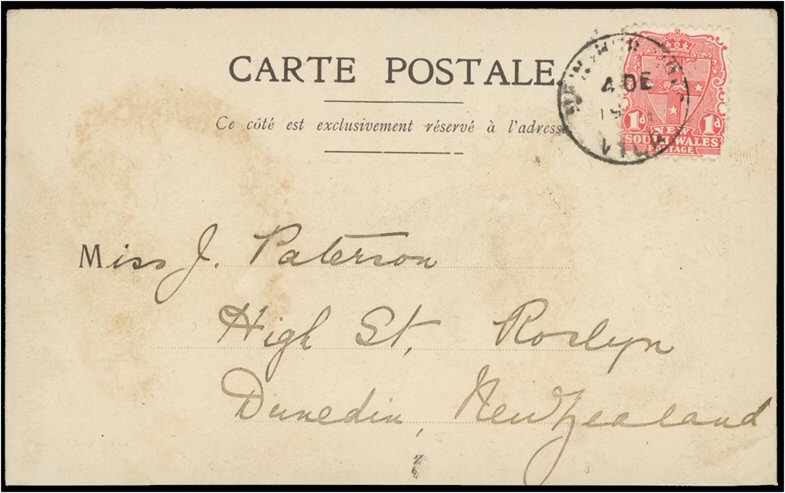 CARTE POSTALE
Ce côté est exclusivement réservé à l'adress
4 DE
1d NEW 1d
SOUTH WALES
POSTAGE
Miss J. Paterson
High St, Roslyn
Dunedin, New Zealand